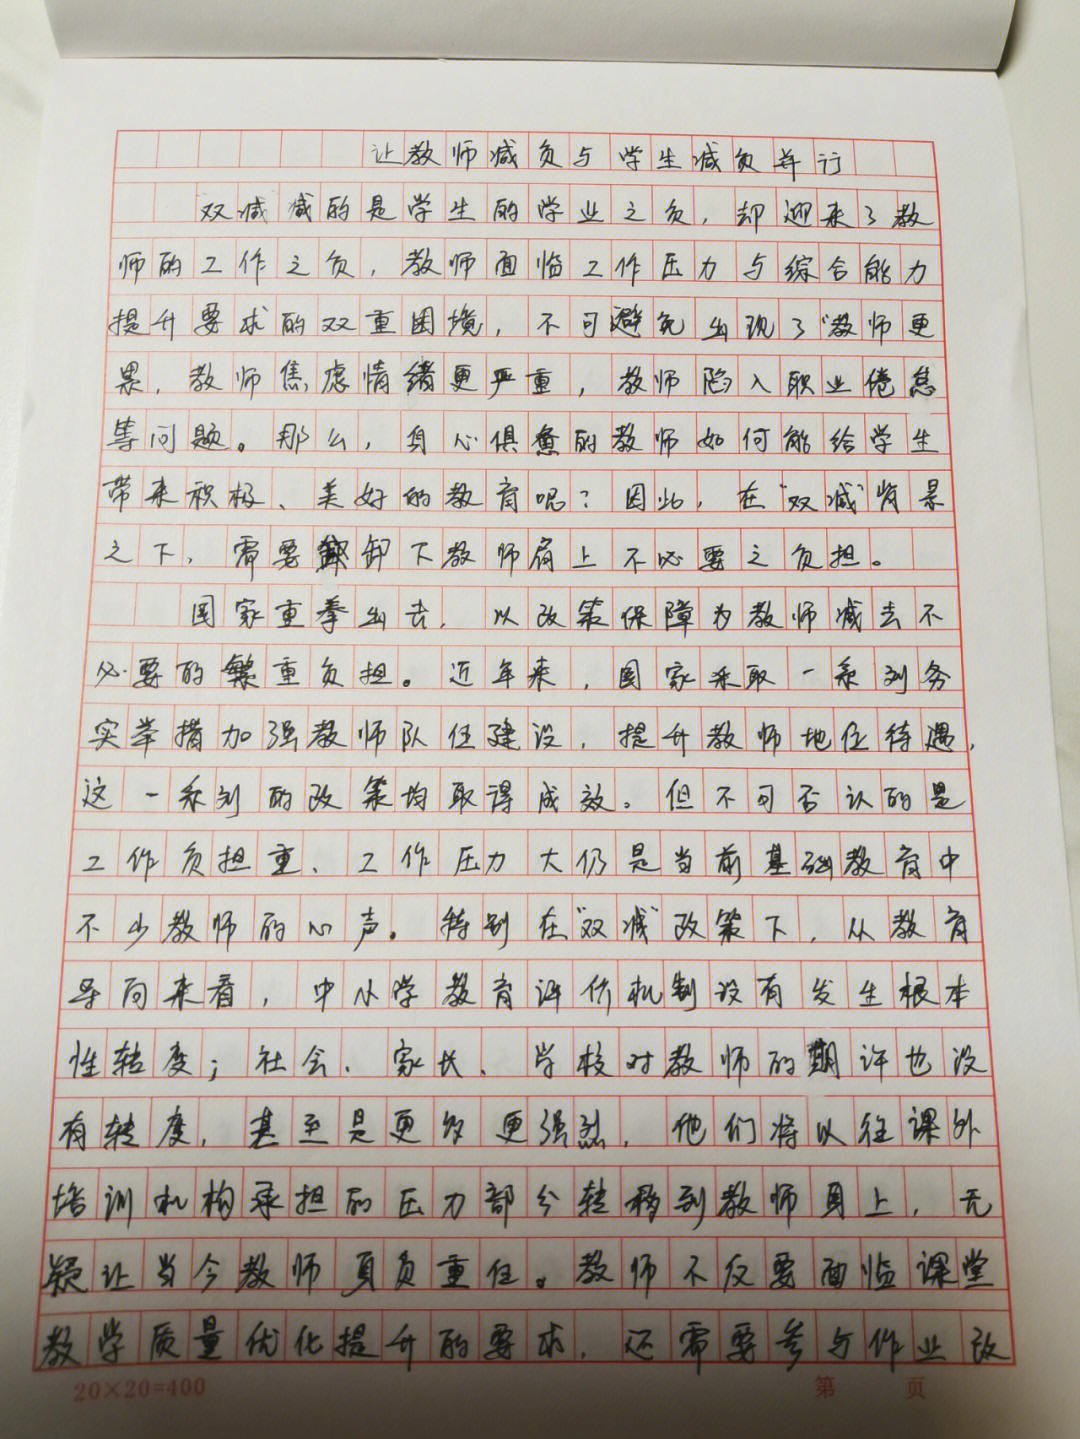 让教师减负与学生减负并行
双减减的是学生的学业之负，却迎来了教
师的工作之负，教师面临工作压力与综合能力
提升要求的双重困境，不可避免出现了“教师更
累，教师焦虑情绪更严重，教师陷入职业倦怠
等问题。那么，身心俱惫的教师如何能给学生
带来积极、美好的教育呢？因此，在“双减”背景
之下，需要卸下教师肩上不必要之负担。
国家重拳出击，以政策保障为教师减去不
必要的繁重负担。近年来，国家采取一系列务
实举措加强教师队伍建设，提升教师地位待遇，
这一系列的政策均取得成效。但不可否认的是
工作负担重、工作压力大仍是当前基础教育中
不少教师的心声。特别在“双减”政策下，从教育
导向来看，中小学教育评价机制没有发生根本
性转度；社会、家长、学校对教师的期许也没
有转度，甚至是更多更强烈，他们将以往课外
培训机构承担的压力部分转移到教师身上，无
疑让当今教师肩负重任。教师不仅要面临课堂
教学质量优化提升的要求，还需要参与作业改
20×20=400
第 页